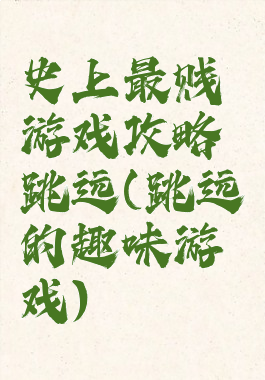 史上最贱
游戏攻略
跳远(跳远
的趣味游
戏)